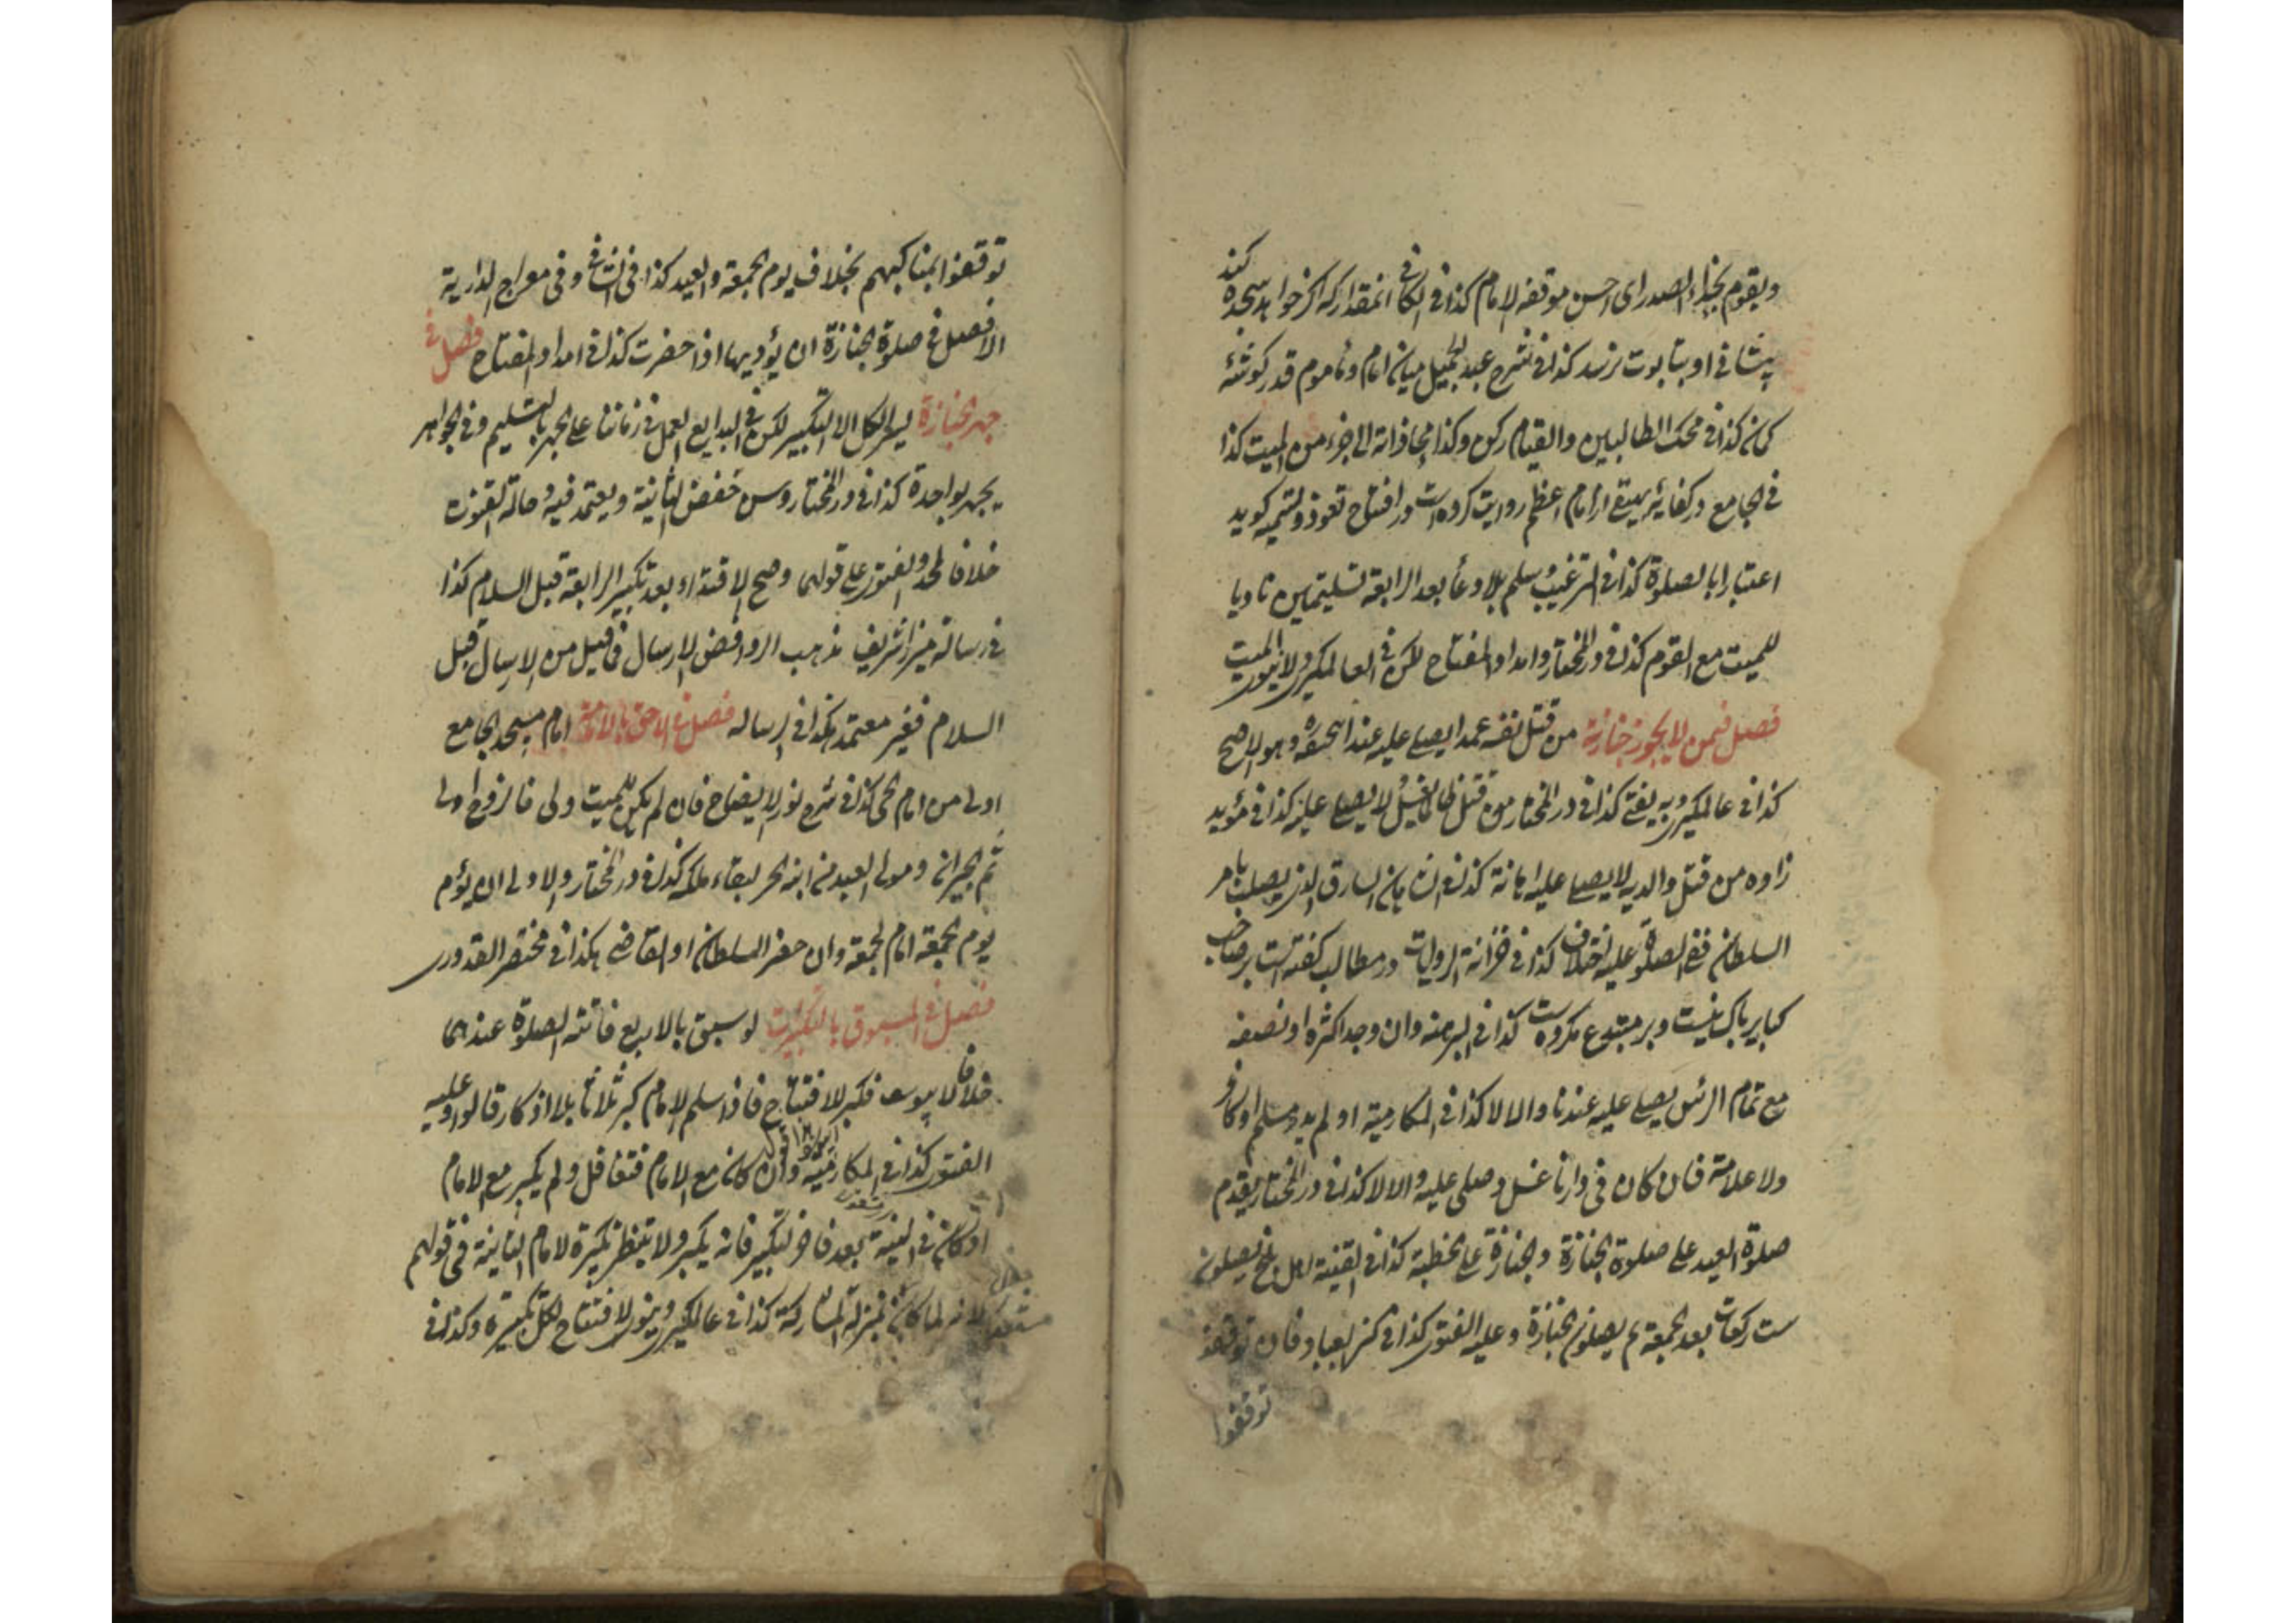 ويقوم بحذاء الصدر اى احسن موقف الامام كذا فى الكافى انمقدار كه اكر خواهد سجده كند
پيشانى او بتابوت نرسد كذا فى شرح عبد الجميل ميان امام و ماموم قدر كوشئه
كمان كذا فى محك الطالبين والقيام ركن وكذا محاذاته الى جزء من الميت كذا
فى الجامع در كفايه بيهقى از امام اعظم روايت كرده است در افتتاح تعوذ و تسميه كويد
اعتبارا بالصلوة كذا فى الترغيب وسلم بلا دعأ بعد الرابعة تسليمتين ناويا
للميت مع القوم كذا فى در المختار وامداد المفتاح لكن فى العالمكيرى ولا ينوى الميت
فصل فيمن لا يجوز جنازته من قتل نفسه عمدا يصلى عليه عند ابيحنيفه وهو الاصح
كذا فى عالمكيرى وبه يفتى كذا فى در المختار من قتل ظالما يغسل ولا يصلى عليه كذا فى مؤيد
زاده من قتل والديه لا يصلى عليه اهانة كذا فى السارق الذى يصلب بامر
السلطان ففى الصلوة عليه اختلاف كذا فى خزانة الروايات در مطالب كفته است بر صاحب
كباير باك نيست وبر مبتدع مكروه است كذا فى البرهنه وان وجد اكثره او نصفه
مع تمام الرئس يصلى عليه عندنا والا لا كذا فى المكارمية او لم يدر مسلم او كافر
ولا علامة فان كان فى دارنا غسل وصلى عليه والا لا كذا فى در المختار يقدم
صلوة العيد على صلوة الجنازة والجنازة على الخطبة كذا فى القنية اهل بلخ يصلون
ست ركعات بعد الجمعة ثم يصلون الجنازة وعليه الفتوى كذا فى كنز العباد فان توقفو
توقفوا
توقفوا بمناكبهم بخلاف يوم الجمعة والعيد كذا فى وفى معراج الدارية
الافضل فى صلوة الجنازة ان يؤديها اذا حضرت كذا فى امداد المفتاح فصل فى
جهر الجنازة يسر الكل الا التكبير لكن فى البدايع العمل فى زماننا على الجهر بالتسليم وفى الجواهر
يجهر بواحدة كذا فى در المختار وسن خفض الثانية ويعتمد فيه حالة القنوت
خلافا لمحمد والفتوى على قولهما وصح الاقتداء بعد تكبير الرابعة قبل السلام كذا
فى رسالة ميرزا شريف مذهب الروافض الارسال فما قيل من الارسال قبل
السلام فغير معتمد هكذا فى رساله فصل فى الاحق بالامامة امام مسجد الجامع
اولى من امام الحى كذا فى شرح نور الايضاح فان لم يكن للميت ولى فالزوج اولى
ثم الجيران ومولى العبد من ابنه الحر لبقاء ملكه كذا فى در المختار والاولى ان يؤم
يوم الجمعة امام الجمعة وان حضر السلطان او القاضى هكذا فى مختصر القدورى
فصل فى المسبوق بالتكبيرات لو سبق بالاربع فاتته الصلوة عندهما
خلافا لابيوسف فكبر للافتتاح فاذا سلم الامام كبر ثلاثا بلا اذكار قالوا وعليه
الفتوى كذا فى المكارمية وان كان مع الامام فتغافل ولم يكبر مع الامام
او كان فى النية بعد فاخر التكبير فانه يكبر ولا ينتظر تكبيرة الامام الثانية فى قولهم
لانه لما كان بمنزلة المشاركة كذا فى عالمكيرى وينوى الافتتاح لكل تكبيرة وكذا فى